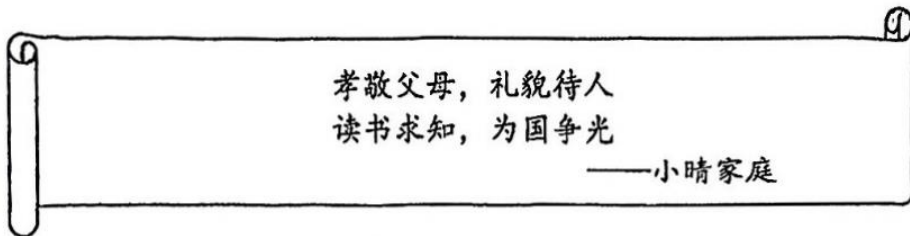 孝敬父母，礼貌待人
读书求知，为国争光
——小晴家庭